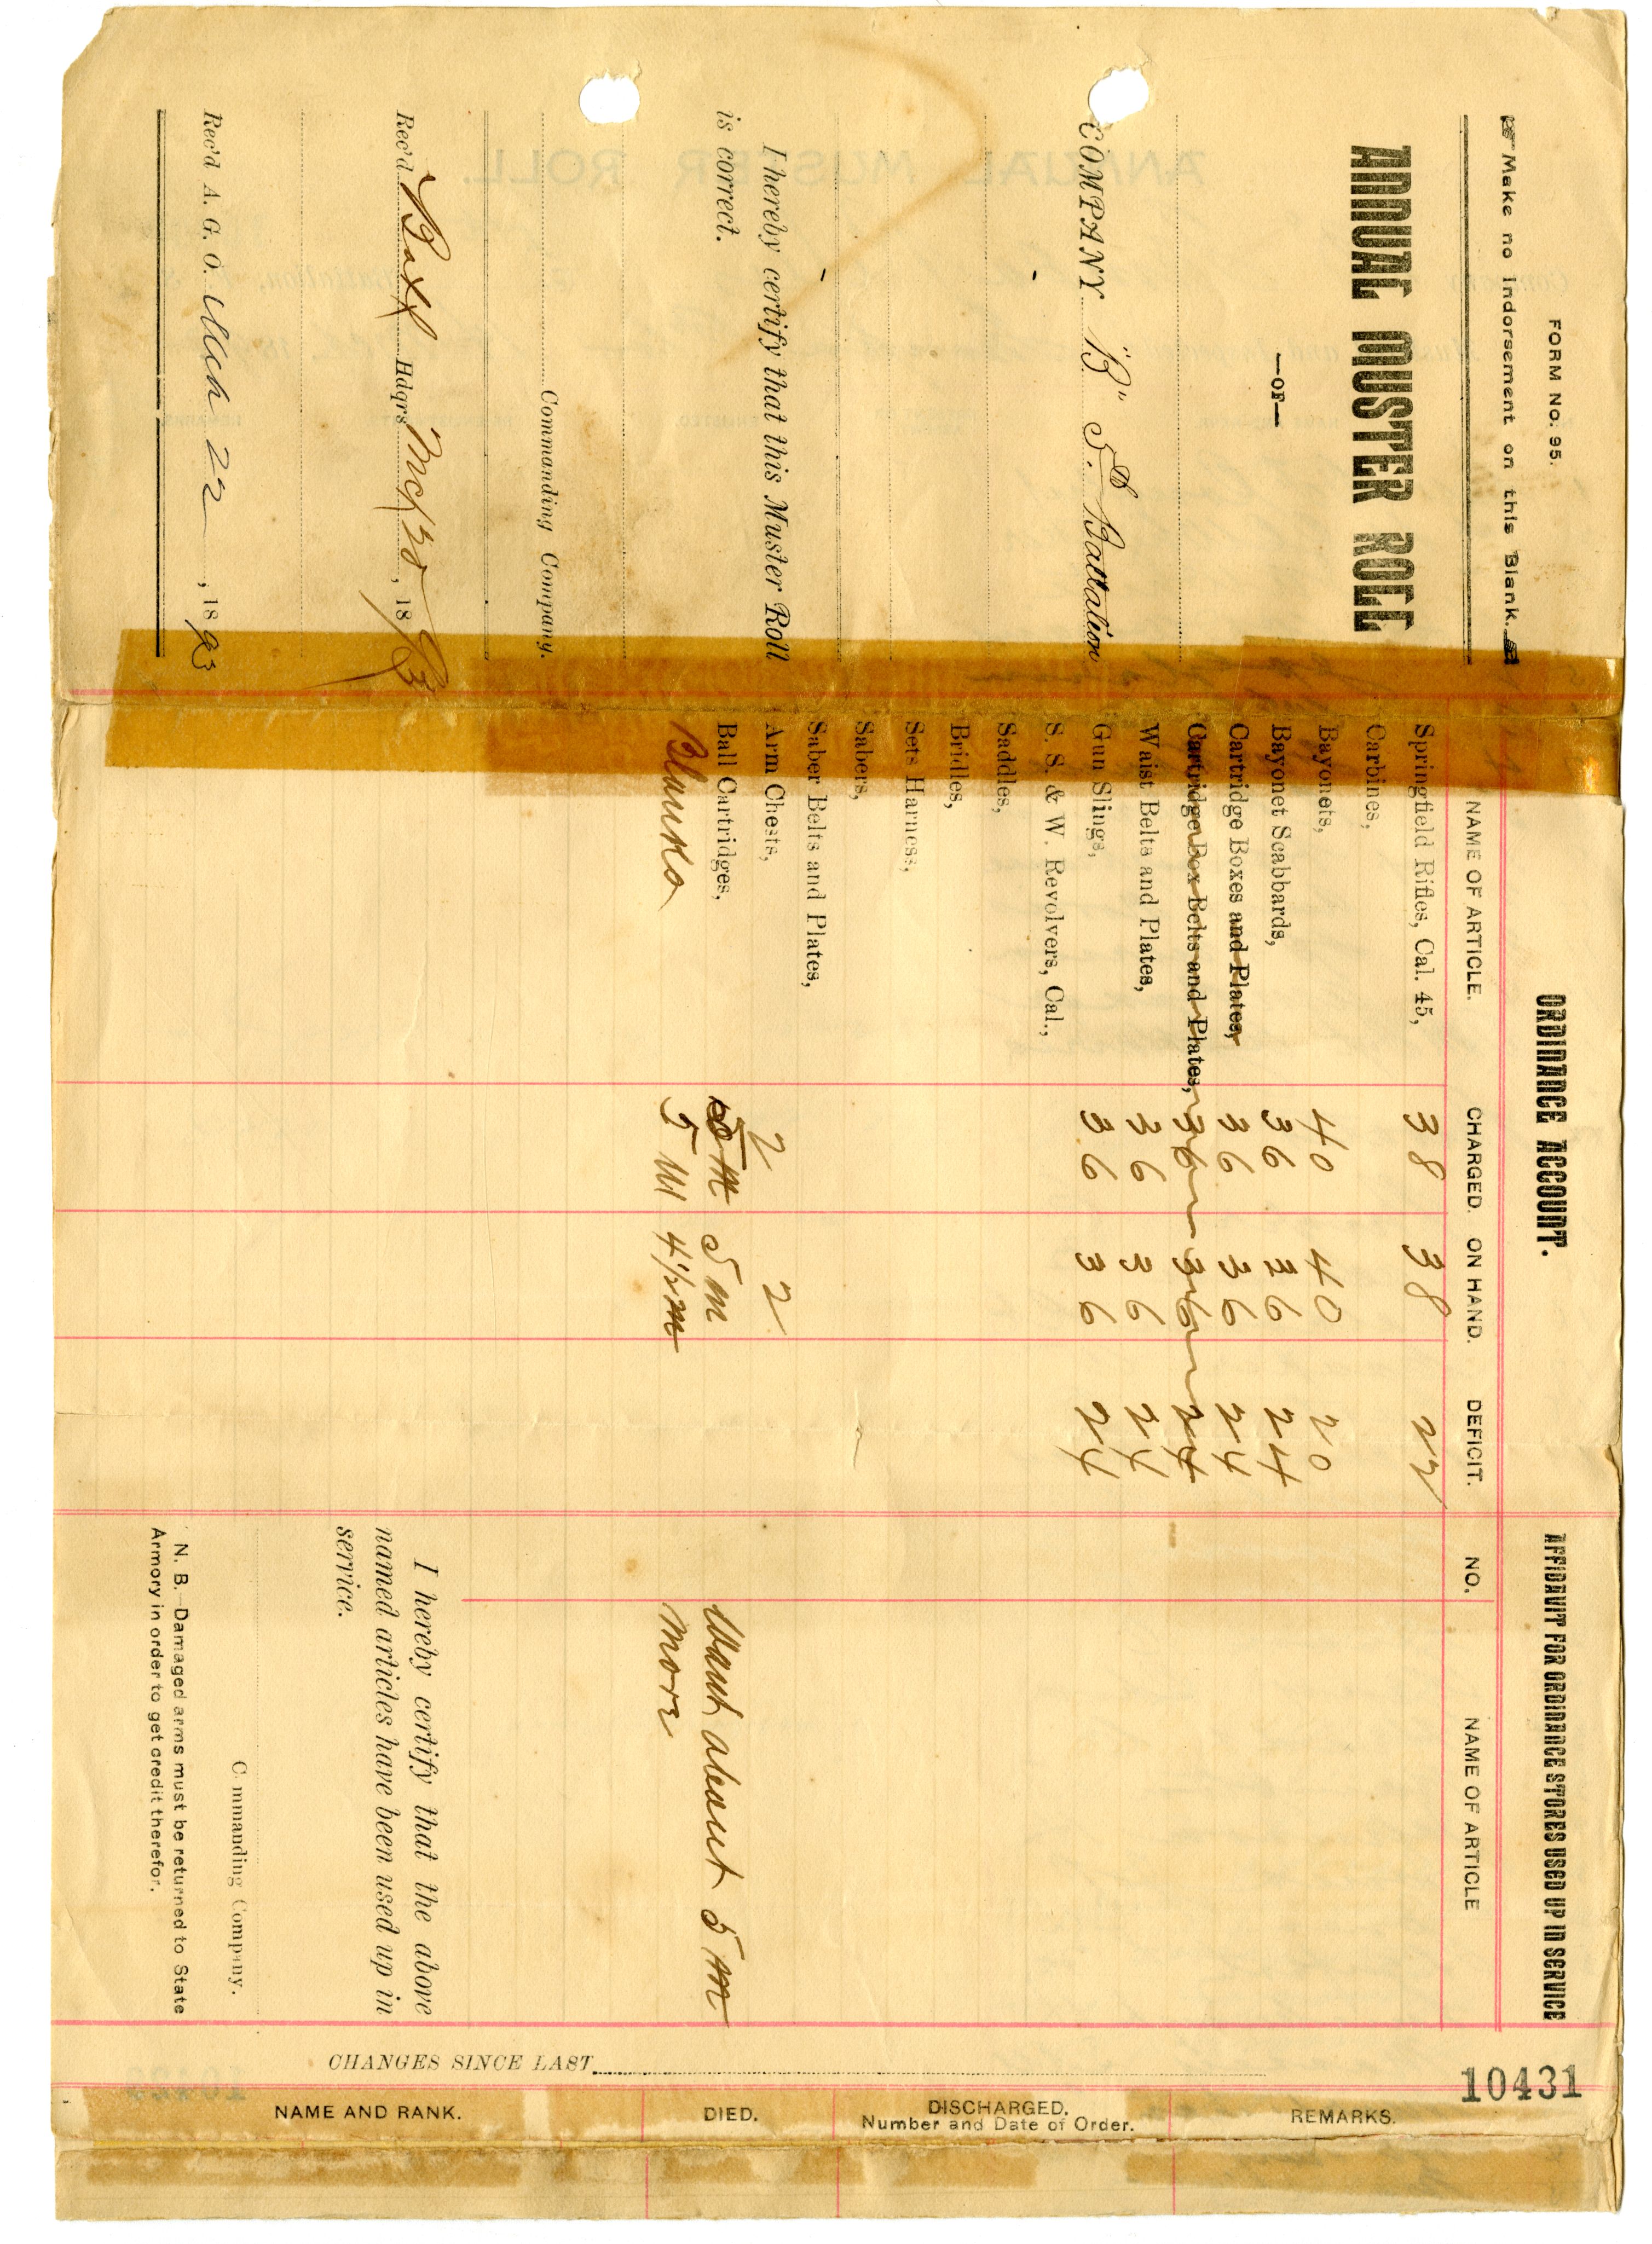 FORM NO. 95.
Make no indorsement on this Blank.
ANNUAL MUSTER ROLL
—OF—
COMPANY "B" 5th Battalion
I hereby certify that this Muster Roll
is correct.
Commanding Company.
Rec'd Hdqrs. , 18 93
Rec'd A. G. O. Mch 22 , 18 93
ORDINANCE ACCOUNT.
NAME OF ARTICLE. CHARGED. ON HAND. DEFICIT.
Springfield Rifles, Cal. 45, 38 38 22
Carbines,
Bayonets, 40 40 20
Bayonet Scabbards, 36 36 24
Cartridge Boxes and Plates, 36 36 24
Cartridge Box Belts and Plates, 36 36 24
Waist Belts and Plates, 36 36 24
Gun Slings, 36 36 24
S. S. & W. Revolvers, Cal.,
Saddles,
Bridles,
Sets Harness,
Sabers,
Saber Belts and Plates,
Arm Chests, 2 2
Ball Cartridges, 5 m 5 m
Blanks 5 M 4 1/2 m
AFFIDAVIT FOR ORDINANCE STORES USED UP IN SERVICE
NO. NAME OF ARTICLE
Want about 5 m
more
I hereby certify that the above
named articles have been used up in
service.
C mmanding Company.
N. B.—Damaged arms must be returned to State
Armory in order to get credit therefor.
10431
CHANGES SINCE LAST
NAME AND RANK. DIED. DISCHARGED. REMARKS.
Number and Date of Order.